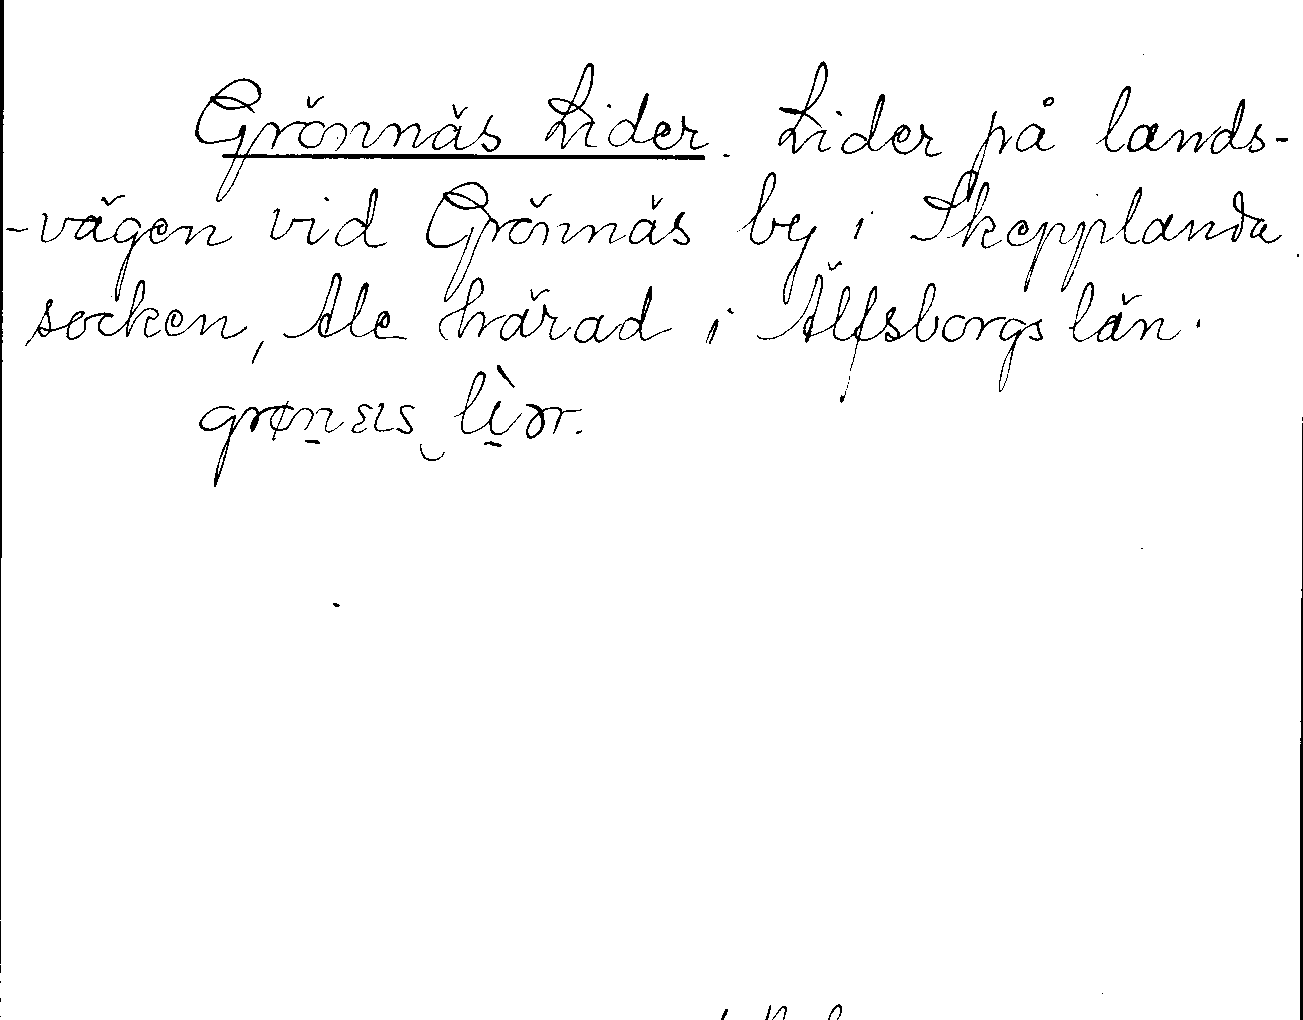 Grönnäs Lider. Lider på lands-
-vägen vid Grönnäs by i Skepplanda
socken, Ale härad i Älfsborgs län.